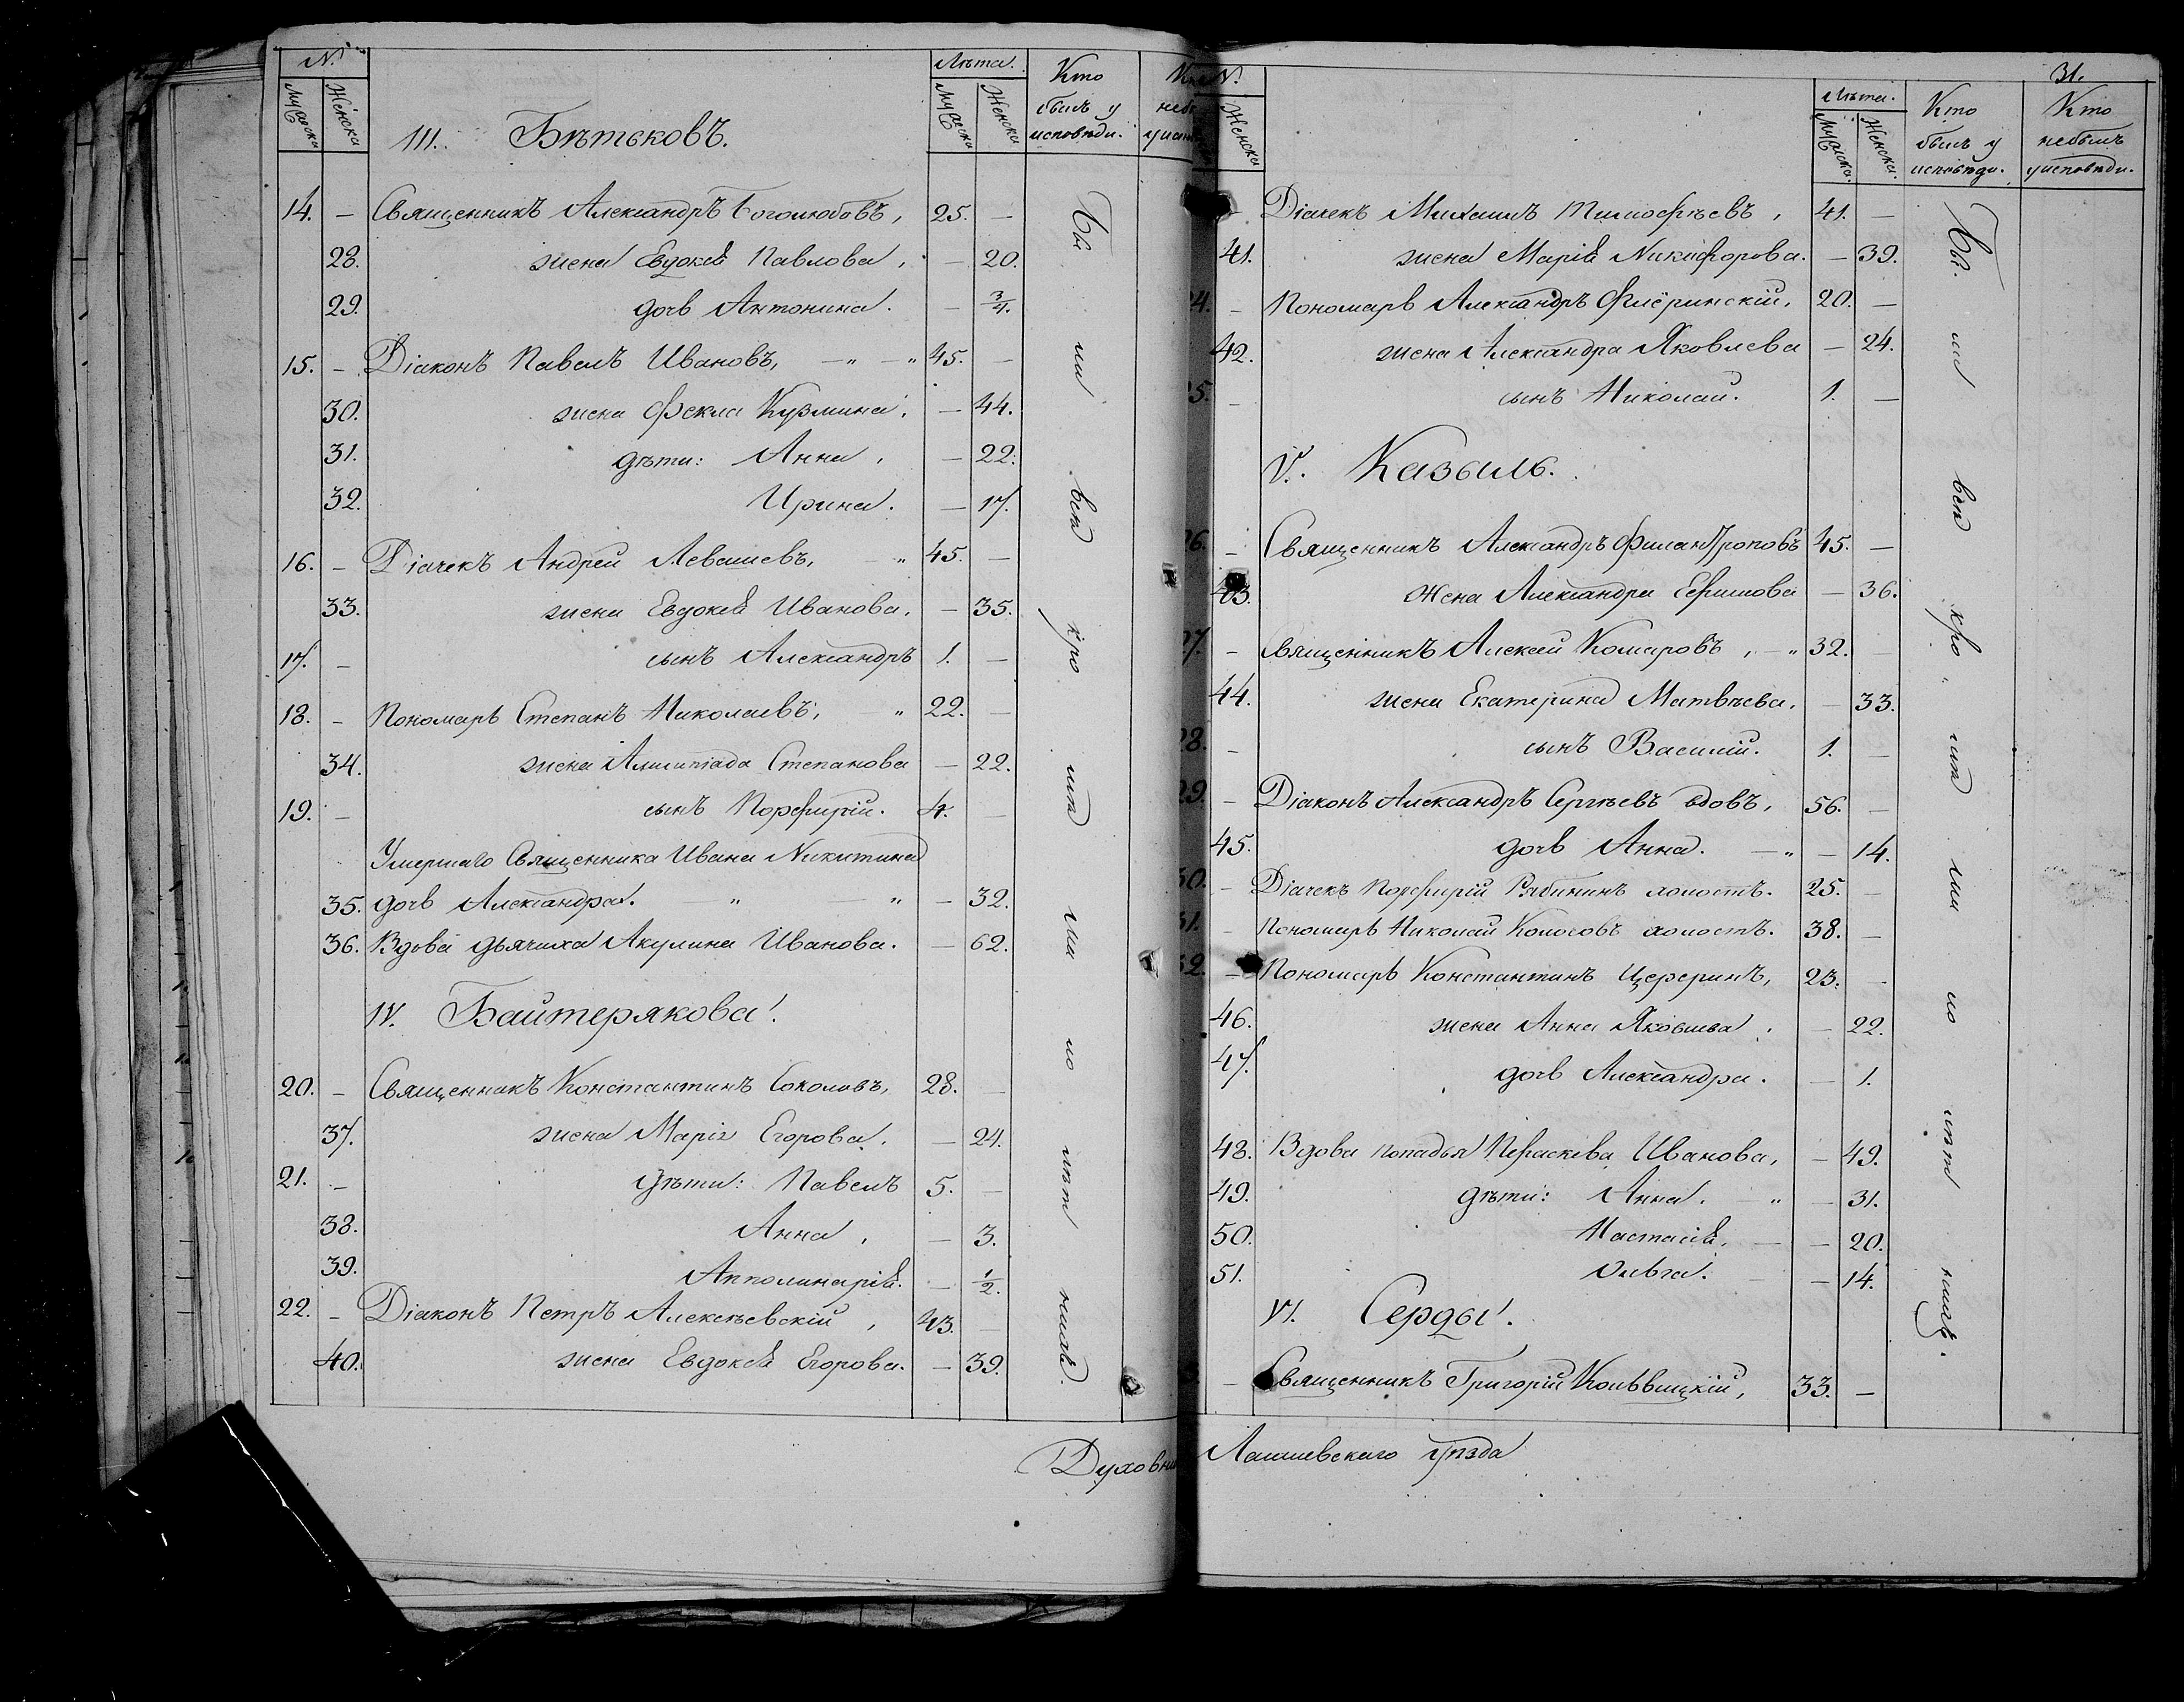 №. Лѣта. Кто былъ у исповѣди.
Мужеска Женска Мужеска Женска
III. Бѣтьковъ.
14. – Священникъ Александръ Боголюбовъ, 25. –
28. жена Евдокія Павлова, – 20.
29. дочь Антонина. – 3/4.
15. – Діаконъ Павелъ Ивановъ, –„ –„ 45. –
30. жена Фекла Кузмина. – 44.
31. дѣти: Анна, – 22.
32. Ирина. – 17.
16. – Діачекъ Андрей Левашевъ, „ 45. –
33. жена Евдокія Иванова. – 35.
17. – сынъ Александръ 1. –
18. – Пономарь Степанъ Николаевъ, „ 22. –
34. жена Степанова – 22.
19. – сынъ Порфирій. 4. –
Умершаго Священника Ивана Никитина
35. дочь Александра. „ „ – 32.
36. Вдова дьячиха Акулина Иванова. – 62.
IV. Байтерякова.
20. – Священникъ Константинъ Соколовъ, 28. –
37. жена Марія Егорова. – 24.
21. – Дѣти: Павелъ 5. –
38. Анна, – 3.
39. Апполинарія. – 1/2.
22. – Діаконъ Петръ Алексѣевскій, 43. –
40. жена Евдокія Егорова. – 39.
Духовни
№. 31.
Женска Лѣта. Кто былъ у исповѣди. Кто небылъ уисповѣди.
Мужеска. Женска.
– Діачекъ Михаилъ Тимофѣевъ, 41. –
41. жена Марія Никифорова. – 39.
24. – Пономарь Александръ Флёринскій. 20. –
42. жена Александра Яковлева – 24.
25. – сынъ Николай. 1. –
V. Казыль.
26. – Священникъ Александръ Филантроповъ 45. –
43. Жена Александра Ефимова – 36.
27. – Священникъ Алексей Комаровъ, –„ 32. –
44. жена Екатерина Матвѣева. – 33.
28. – сынъ Василій. 1. –
29. – Діаконъ Александръ Сергѣевъ вдовъ, 56. –
45. дочь Анна. –„ – 14.
30. – Діачекъ Порфирій Рябининъ холостъ. 25. –
31. – Пономарь Николай Колосовъ холостъ. 38. –
32. – Пономарь Константинъ 23. –
46. жена Анна Яковлева, – 22.
47. дочь Александра. – 1.
48. Вдова попадья Параскева Иванова, – 49.
49. дѣти: Анна. „ – 31.
50. Настасія, – – 20.
51. Ольга. – 14.
VI. Серды.
– Священникъ Григорій 33. –
Лаишевскаго уѣзда